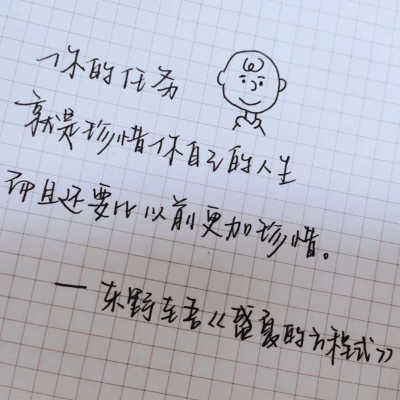 你的任务
就是珍惜你自己的人生
而且还要比以前更加珍惜。
— 东野圭吾《盛夏的方程式》